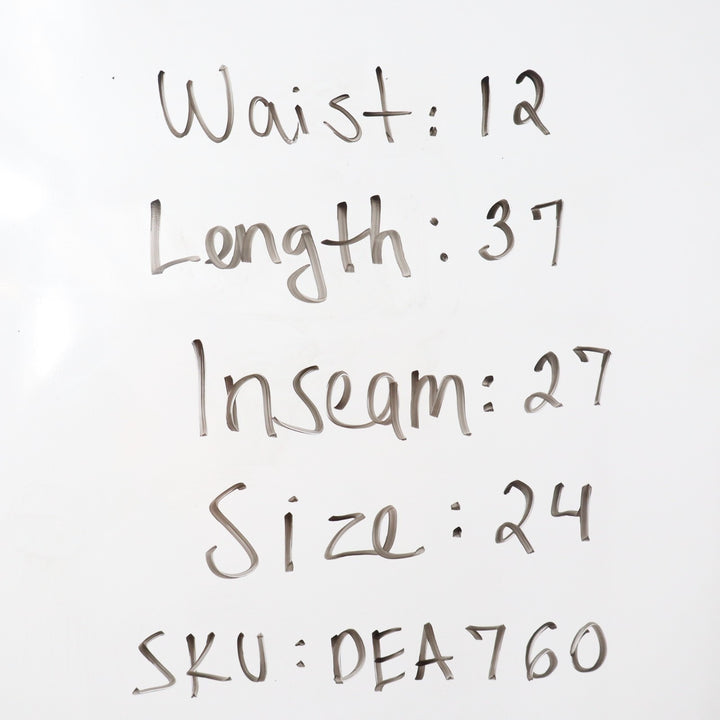 Waist: 12
Length: 37
Inseam: 27
Size: 24
SKU: DEA760